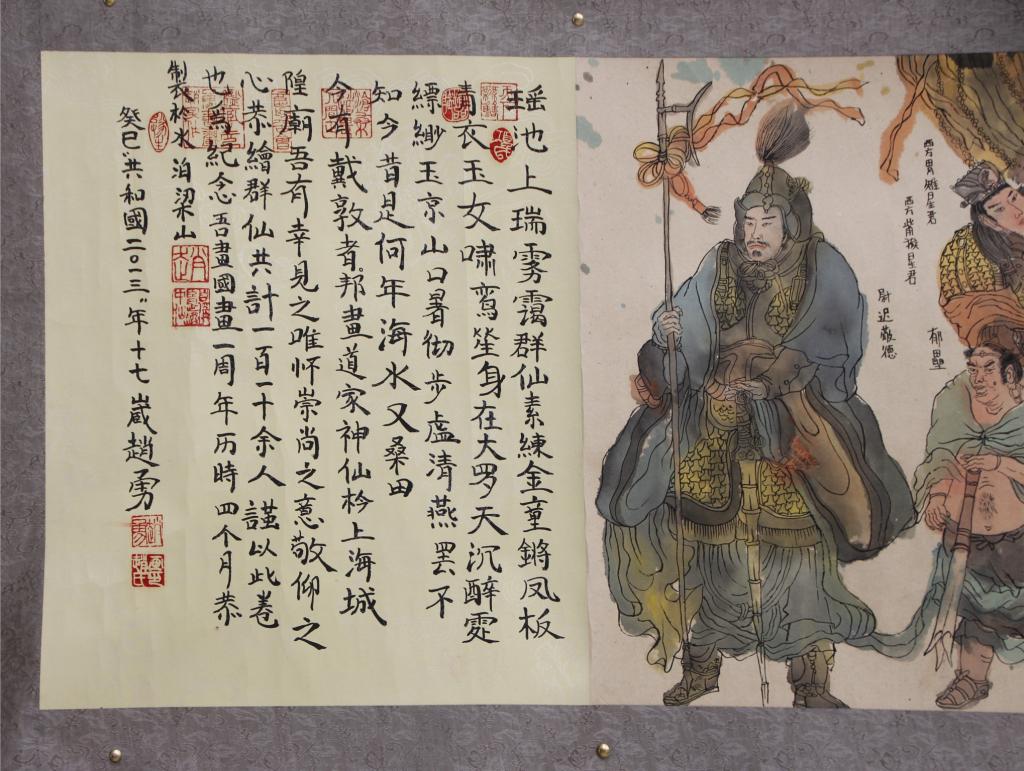 瑶池上瑞雾霭群仙素練金童鏘凤板
青衣玉女嘯鸾笙身在大罗天沉醉处
縹緲玉京山口暑彻步虚清燕罢不
知今昔是何年海水又桑田
今有戴敦者邦畫道家神仙於上海城
隍廟吾有幸見之唯怀崇尚之意敬仰之
心恭繪群仙共計一百一十余人謹以此卷
也為紀念吾畫國畫一周年历時四个月恭
製於水泊梁山
癸巳"共和國二〇一三"年十七嵗趙勇
西方胃雉星君
西方觜猴星君
尉迟敬德
郁壘